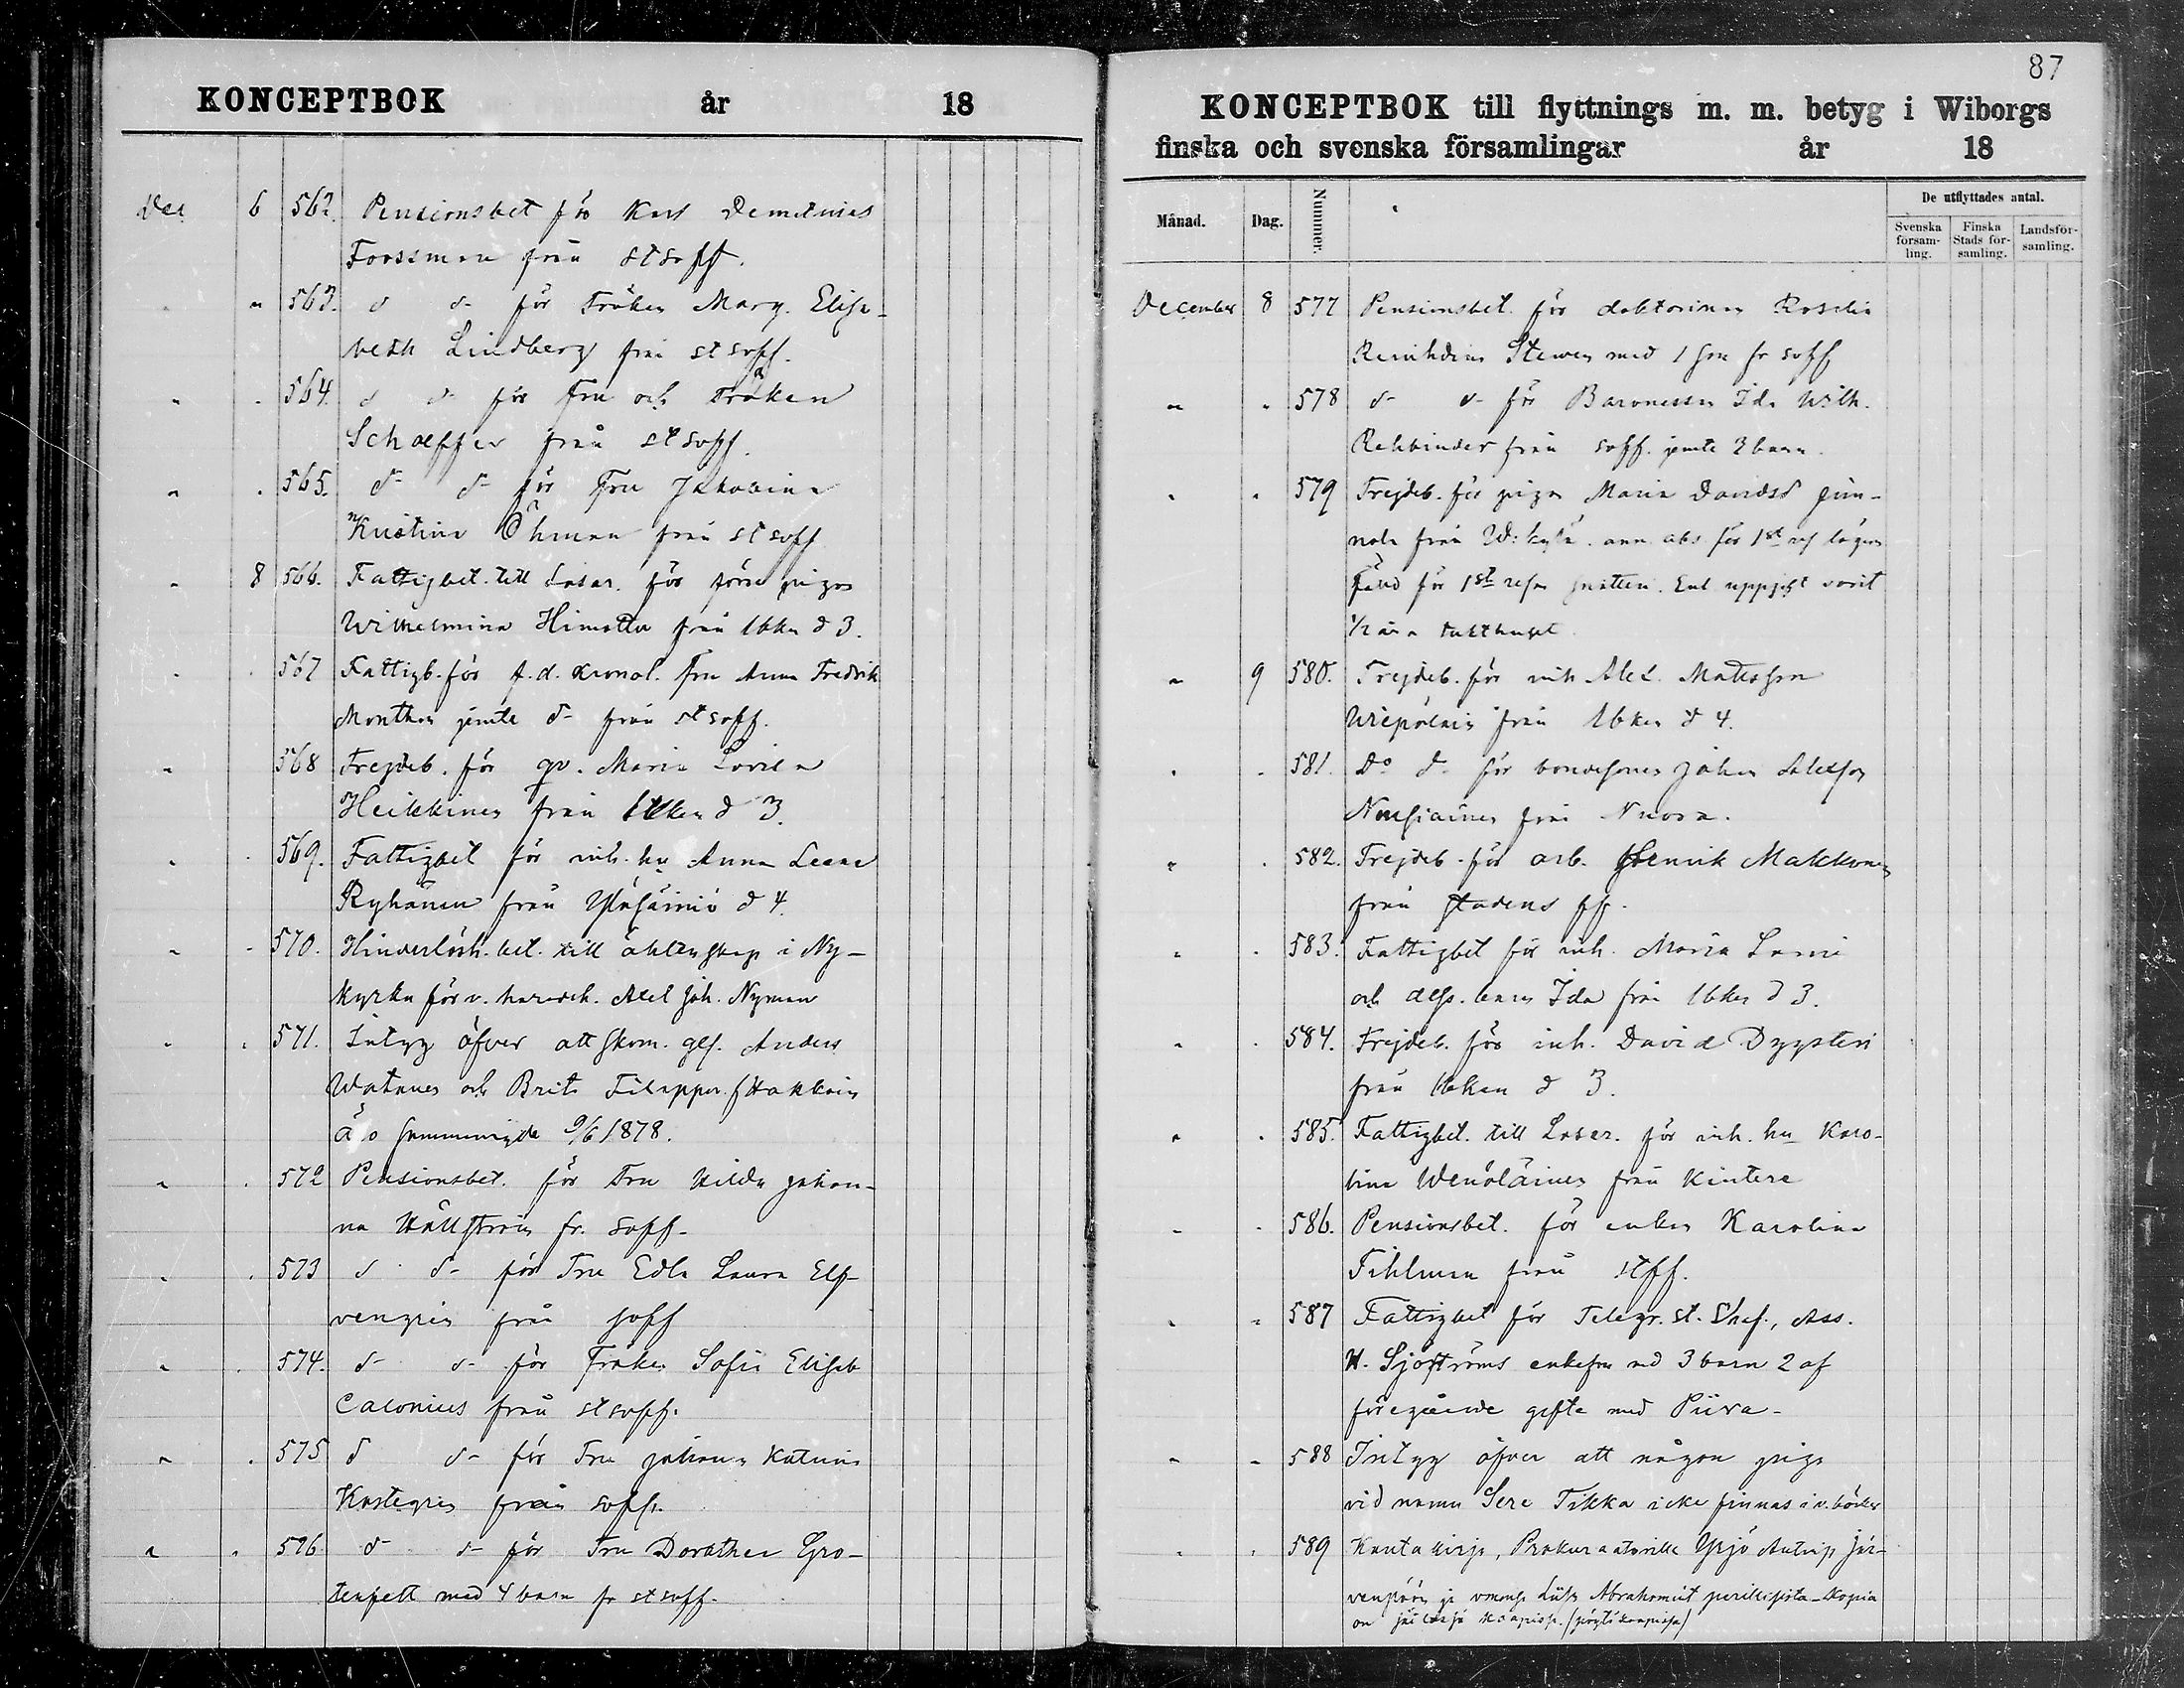 KONCEPTBOK år 18
Dec 6 562. Pensionsbet för Karl Demetrius
Forssman från st soff.
" " 563. d d- för Fröken Marg. Elisa-
beth Lindberg från st soff.
" " 564. d d- för Fru och Fröken
Schæffer från st soff.
" " 565. d- d- för Fru Jakobina
Kristina Öhman från st soff
" 8 566. Fattigbet. till Lasar. för förra pigan
Wilhelmina Himottu från lbkn d 3.
" " 567 Fattigb. för f. d. kronol. Fru Anna Fredrik
Monthen jemte d- från st soff.
" 568 Frejdeb. för qv. Maria Lovisa
Heikkinen från lbken d 3.
" " 569. Fattigbet för inh. hu Anna Leena
Ryhänen från Yläsäiniö d 4.
" " 570. Hinderlösh. bet. till äktenskap i Ny-
kyrka för v. häradsh. Axel Joh. Nyman
" " 571. Intyg öfver att skom. ges. Anders
Watanen och Brita Filippa Hakkain
äro sammanvigda 9/6 1878.
" " 572 Pensionsbet. för Fru Hilda Johan-
na Hällström fr. soff-
" " 573 d d- för Fru Edla Laura Elf-
vengren från soff
" " 574. d- d- för Fröken Sofie Elisab
Calonius från st soff.
" " 575 d d- för Fru Johanna Katrina
Kostegren från soff.
" " 576 d- d- för Fru Dorothea Gro-
tenfelt med 4 barn fr st soff.
87
KONCEPTBOK till flyttnings m. m. betyg i Wiborgs
finska och svenska församlingar år 18
Månad. Dag. Nummer. De utflyttades antal.
Svenska församling. Finska Stads församling. Landsförsamling.
December 8 577 Pensionsbet. för doktorinnan Rosalie
Steven med 1 son fr soff
" " 578 d- d- för Baronessan Ida Wilh.
Rehbinder från soff. jemte 3 barn.
" " 579 Frejdeb. för pigan Maria Davidsd
från W: kylä. ann. abs. för 1st
för 1st resan snatteri. Enl uppgift varit
1/2 år å tukthuset.
" 9 580. Frejdeb. för inh Alex. Matsson
Wiepolain från lbken d 4.
" " 581. Do d- för bondesonen Johan Alexson
Nousiainen från Nuora.
" " 582. Frejdeb. för arb. Henrik Makkonen
från stadens ff.
" " 583. Fattigbet för inh. Maria Lami
och dess barn Ida från lbken d 3.
" " 584. Frejdeb. för inh. David Dyysteri
från lbken d 3.
" " 585. Fattigbet. till Lasar. för inh. hu Karo-
lina Wenäläinen från Kintere
" " 586. Pensionsbet. för enkan Karolina
Fihlman från st ff.
" " 587 Fattigbet för Telegr. st. Chef., Ass.
H. Sjöströms enkefru med 3 barn 2 af
föregående gifte med Piira-
" " 588 Intyg öfver att någon piga
vid namn Sere Tikka icke finnas i v. böcker
" " 589 Kantakirje, Prokuraatorille Yrjö Antinp Jär-